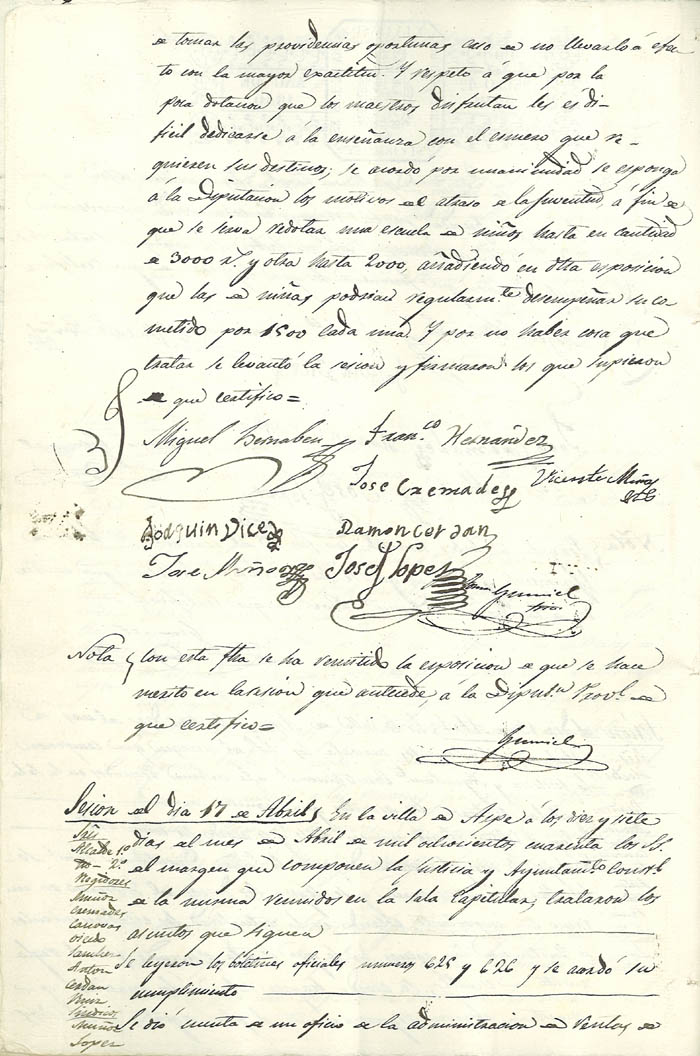 de tomar las providencias oportunas caso de no llevarlo á efec-
to con la mayor exactitud. Y respeto á que por la
poca dotacion que los maestros disfrutan les es di-
ficil dedicarse á la enseñanza con el esmero que re-
quieren sus destinos; se acordó por unanimidad se esponga
á la Diputacion los motivos del atraso de la juventud, á fin de
que se sirva redotar una escuela de niños hasta en cantidad
de 3000 r.s y otra hasta 2000, añadiendo en dha esposicion
que las de niñas podrian regularm.te desempeñar su co-
metido por 1500 cada una. Y por no haber cosa que
tratar se levantó la sesion y firmaron los que supieron
de que certifico=
Miguel Bernabeu Fran.co Hernandez
Jose Cremades Vicente Miñoz
Joaquin Vicedo Ramon Cerdan
Jose Muñoz Jose Lopez
Gumiel
Srio
Nota Con esta fha se ha remitido la esposicion de que se hace
merito en la sesion que antecede, á la Diput.n Prov.l de
que certifico=
Gumiel
Sesion del dia 17 de Abril En la villa de Aspe á los diez y siete
dias del mes de Abril de mil ochocientos cuarenta los SS.
del margen que componen la Justicia y Ayuntam.to Const.l
de la misma reunidos en la sala Capitular, trataron los
asuntos que siguen
Se leyeron los boletines oficiales numeros 625 y 626 y se acordó su
cumplimiento
Se dió cuenta de un oficio de la administracion de rentas de
Sres
Alcalde 1.º
Yd. 2.º
Regidores
Muñoz
Cremades
Canovas
Vicedo
Sanchez
Anton
Cerdan
Ruiz
Sindicos
Muñoz
Lopez